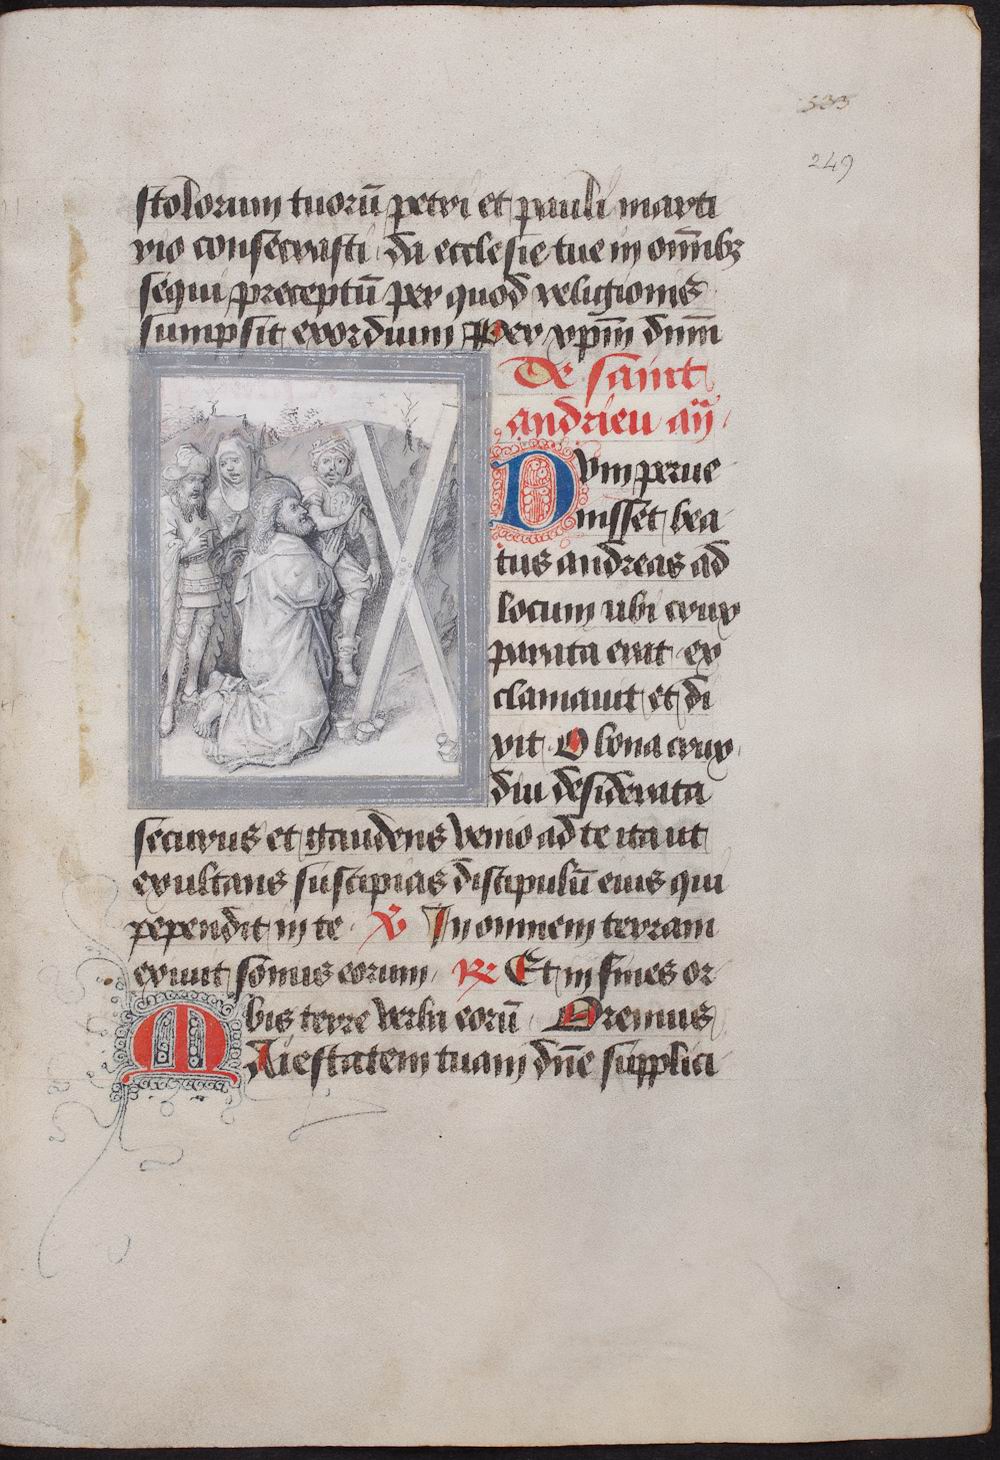 533
249
stolorum tuorū petri et pauli marti
rio consecrasti da ecclesie tue in om̄ibꝫ
sequi preceptū per quod religionis
sumpsit exordium Per xp̄m dn̄m
De saint
andrieu añ
Dum perue
nisset bea
tus andreas ad
locum ubi crux
parata erat ex
clamauit et di
xit O bona crux
diu desiderata
securus et gaudens venio ad te ita ut
exultans suscipias discipulū eius qui
pependit in te ℣ In omnem terram
exiuit sonus eorum ℟ Et in fines or
bis terre verba eorū Oremus
MAiestatem tuam dn̄e supplici